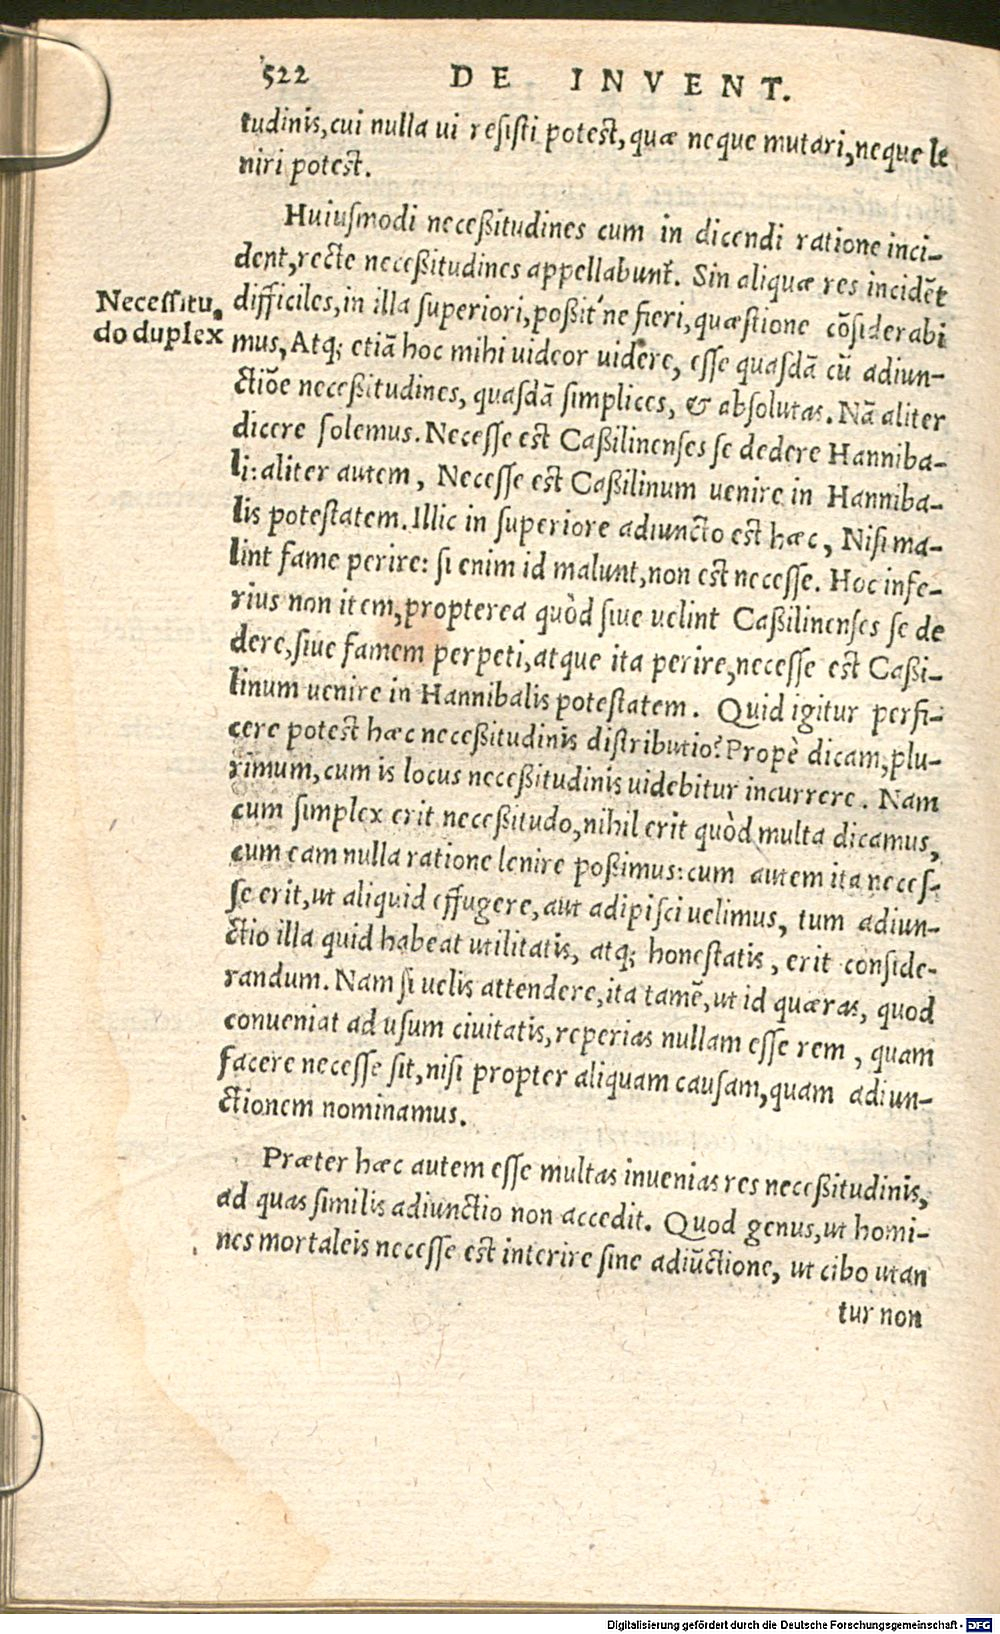 522 DE INVENT.
tudinis, cui nulla ui resisti potest, quæ neque mutari, neque le
niri potest.
Huiusmodi neceßitudines cum in dicendi ratione inci-
dent, recte neceßitudines appellabunt̃. Sin aliquæ res incidẽt
Necessitu-
do duplex
difficiles, in illa superiori, poßit´ne fieri, quæstione cõsiderabi
mus, Atq; etiã hoc mihi uideor uidere, esse quasdã cũ adiun-
ctiõe neceßitudines, quasdã simplices, & absolutas. Nã aliter
dicere solemus. Necesse est Caßilinenses se dedere Hanniba-
li: aliter autem, Necesse est Caßilinum uenire in Hanniba-
lis potestatem. Illic in superiore adiuncto est hæc, Nisi ma-
lint fame perire: si enim id malunt, non est necesse. Hoc infe-
rius non item, propterea quòd siue uelint Caßilinenses se de
dere, siue famem perpeti, atque ita perire, necesse est Caßi-
linum uenire in Hannibalis potestatem. Quid igitur perfi-
cere potest hæc neceßitudinis distributio? Propè dicam, plu-
rimum, cum is locus neceßitudinis uidebitur incurrere. Nam
cum simplex erit neceßitudo, nihil erit quòd multa dicamus,
cum eam nulla ratione lenire poßimus: cum autem ita neces-
se erit, ut aliquid effugere, aut adipisci uelimus, tum adiun-
ctio illa quid habeat utilitatis, atq; honestatis, erit conside-
randum. Nam si uelis attendere, ita tamẽ, ut id quæras, quod
conueniat ad usum ciuitatis, reperias nullam esse rem, quam
facere necesse sit, nisi propter aliquam causam, quam adiun-
ctionem nominamus.
Præter hæc autem esse multas inuenias res neceßitudinis,
ad quas similis adiunctio non accedit. Quod genus, ut homi-
nes mortaleis necesse est interire sine adiũctione, ut cibo utan
tur non
Digitalisierung gefördert durch die Deutsche Forschungsgemeinschaft - DFG